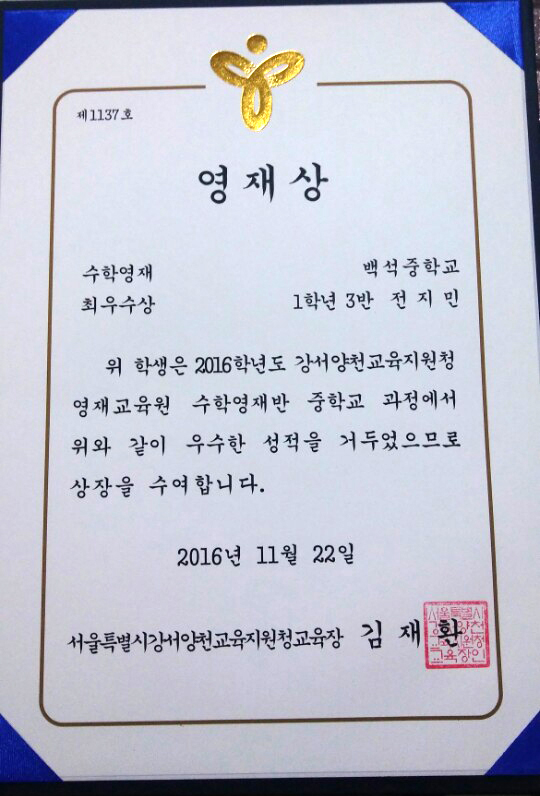 제1137호
영재상
수학영재 백석중학교
최우수상 1학년 3반 전지민
위 학생은 2016학년도 강서양천교육지원청
영재교육원 수학영재반 중학교 과정에서
위와 같이 우수한 성적을 거두었으므로
상장을 수여합니다.
2016년 11월 22일
서울특별시강서양천교육지원청교육장 김재환
서울특별시
강서양천
교육지원청
교육장인